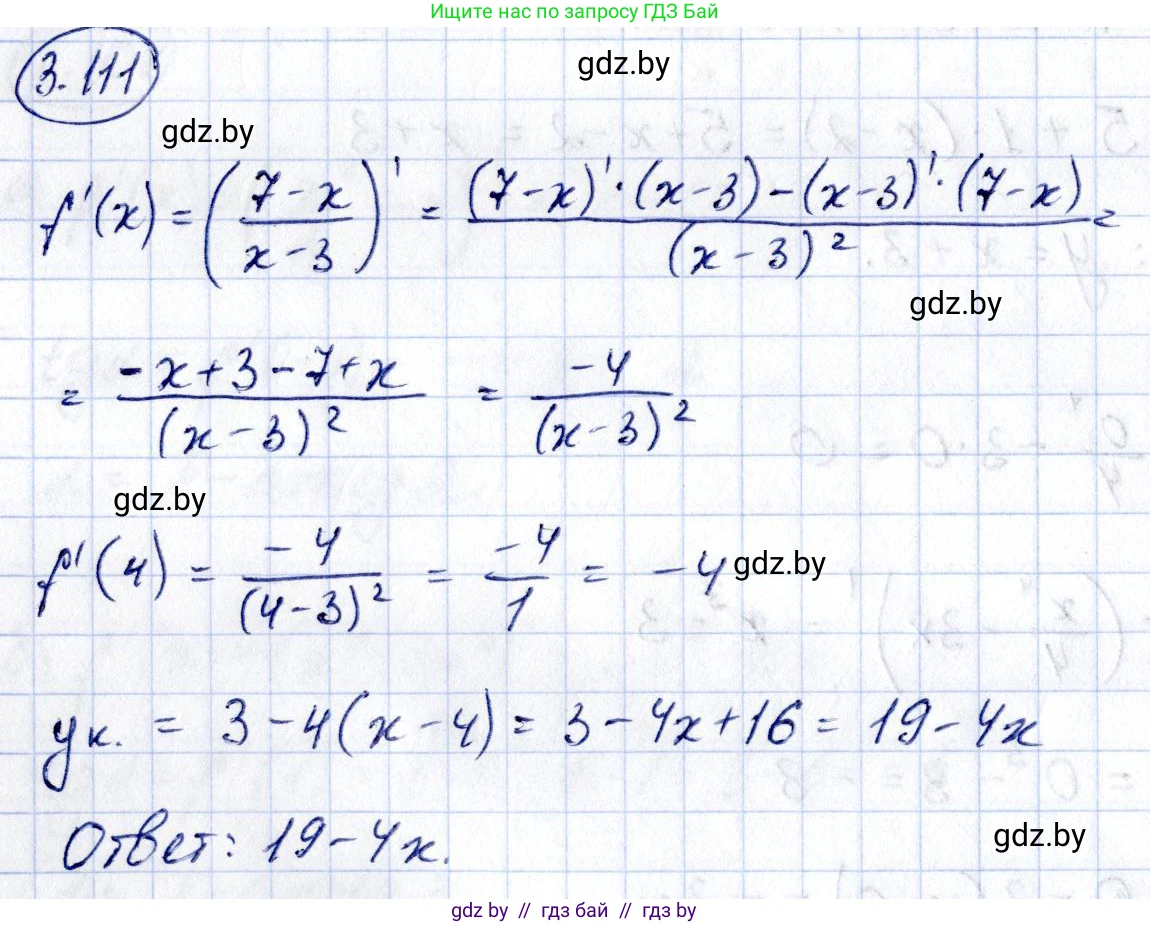 Ищите нас по запросу ГДЗ Бай
3.111
gdz.by
gdz.by
f'(x) = ((7 - x)/(x - 3))' = ((7 - x)' · (x - 3) - (x - 3)' · (7 - x))/(x - 3)² =
gdz.by
= (-x + 3 - 7 + x)/(x - 3)² = -4/(x - 3)²
gdz.by
f'(4) = -4/(4 - 3)² = -4/1 = -4
gdz.by
yк. = 3 - 4(x - 4) = 3 - 4x + 16 = 19 - 4x
Ответ: 19 - 4x.
gdz.by
gdz by // гдз бай // гдз by